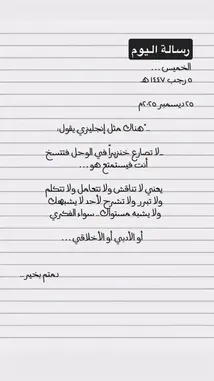 رسالة اليوم
الخميس ...
٥ رجب ١٤٤٧ هـ
٢٥ ديسمبر ٢٠٢٥م
.."هناك مثل إنجليزي يقول؛
_لا تصارع خنزيراً في الوحل فتتسخ
أنت فيستمتع هو...
يعني لا تناقش ولا تتعامل ولا تتكلم
ولا تبرر ولا تشرح لأحد لا يشبهك
ولا يشبه مستواك.. سواء الفكري
أو الأدبي أو الأخلاقي...
دمتم بخير..